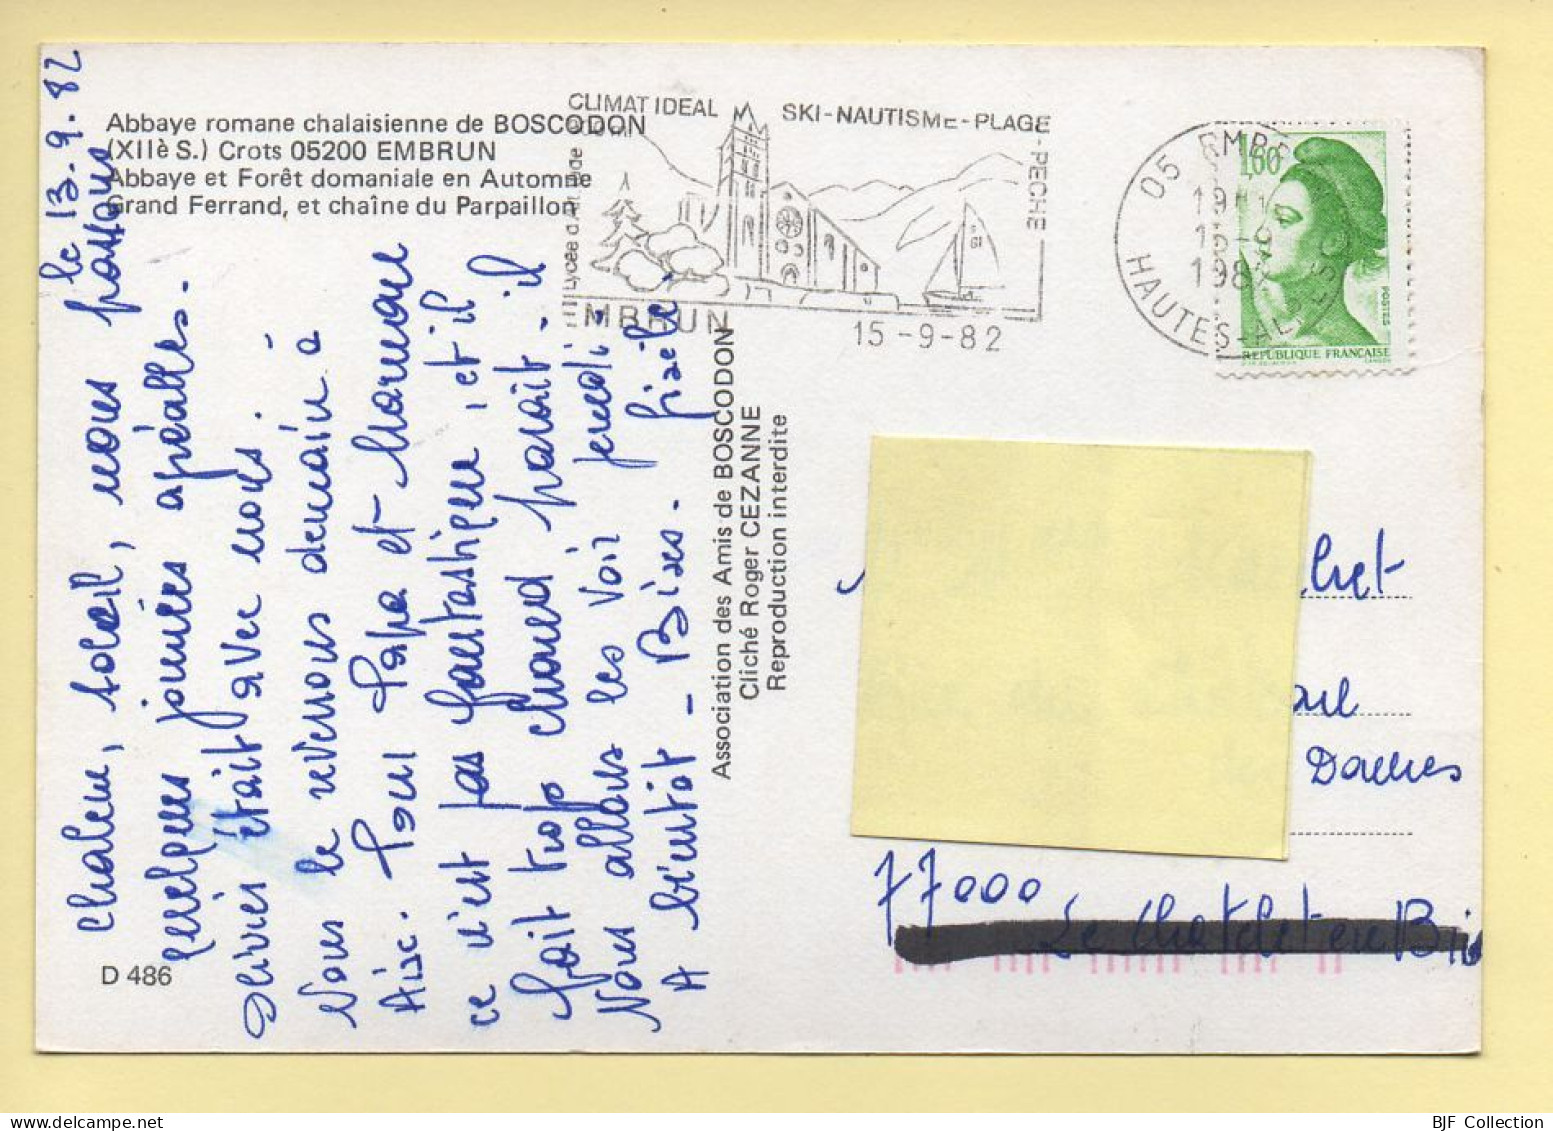 Abbaye romane chalaisienne de BOSCODON
(XIIè S.) Crots 05200 EMBRUN
Abbaye et Forêt domaniale en Automne
Grand Ferrand, et chaîne du Parpaillon
CLIMAT IDEAL
SKI-NAUTISME-PLAGE
-PECHE-
Lycée d'Altitude
EMBRUN
15-9-82
05 EMBRUN
15-9
198
HAUTES-ALPES
1,60
POSTES
REPUBLIQUE FRANCAISE
le 13.9.82
Chaleur, soleil, nous passons
quelques journées agréables.
était avec nous.
Nous le revenous demain à
Aix. Pour Papa et Maman
ce n'est pas fantastique, et il
fait trop chaud parait-il
Nous allons les voir jeudi.
A bientôt - Bises. Gisèle
Association des Amis de BOSCODON
Cliché Roger CEZANNE
Reproduction interdite
D 486
Dames
77000
Le Chatelet en Brie
BJF Collection